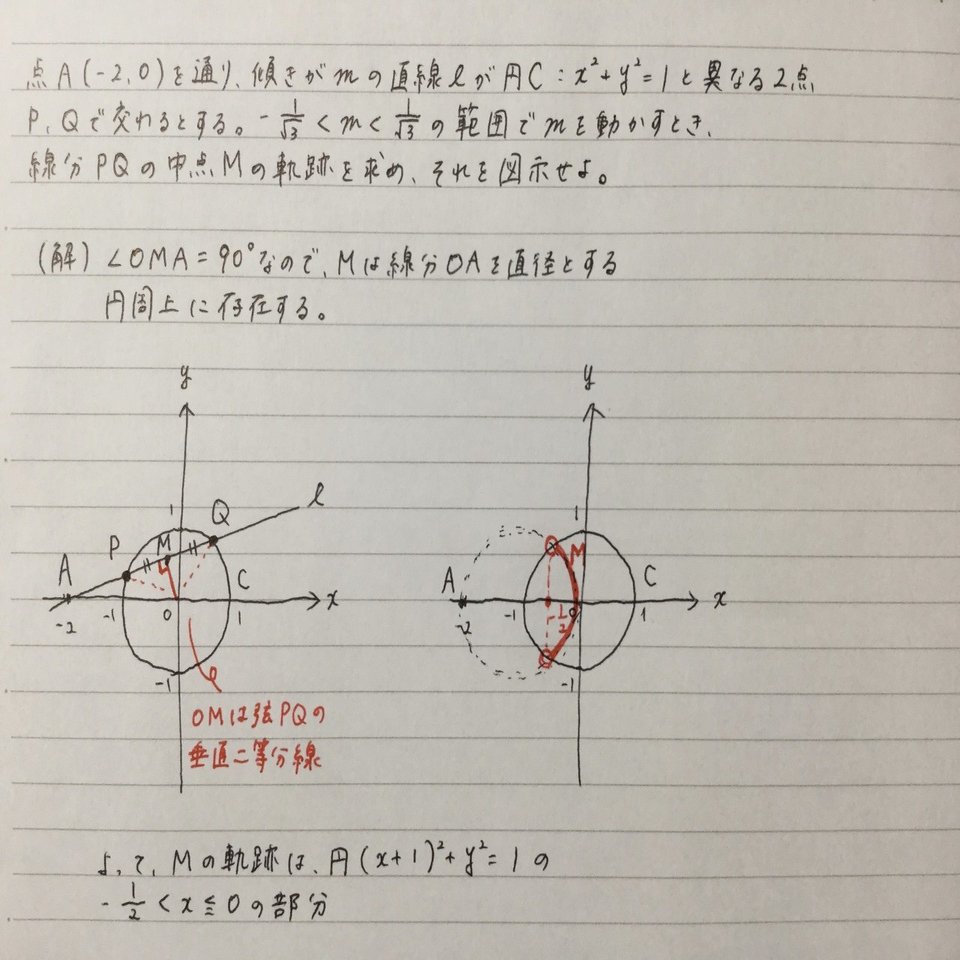 点A(-2,0)を通り、傾きがmの直線lが円C:x²+y²=1と異なる2点
P、Qで交わるとする。-1/√3<m<1/√3の範囲でmを動かすとき、
線分PQの中点Mの軌跡を求め、それを図示せよ。
(解)∠OMA=90°なので、Mは線分OAを直径とする
円周上に存在する。
y
1
Q
l
P
M
A
C
-2
-1
0
1
x
-1
OMは弦PQの
垂直二等分線
y
1
M
A
C
-2
-1
-1/2
0
1
x
-1
よって、Mの軌跡は、円(x+1)²+y²=1の
-1/2<x≦0の部分